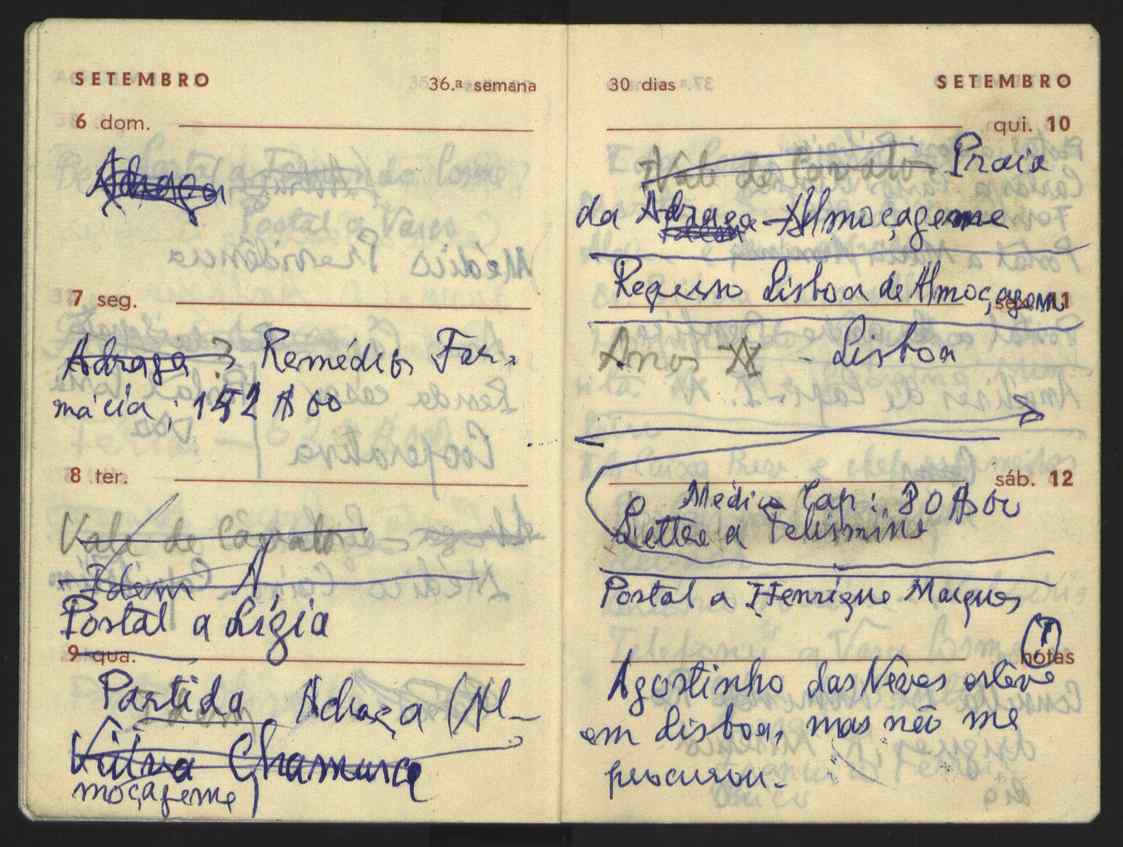 SETEMBRO 36.ª semana
6 dom.
Adraga
7 seg.
Adraga ? Remédios Far-
mácia : 152$00
8 ter.
Vale de Cavalo
Idem
Postal a Lígia
9 qua.
Partida Adraga (Al-
Chamusca
moçageme)
30 dias SETEMBRO
qui. 10
Vale de Cavalo Praia
da Adraga - Almoçageme
Regresso Lisboa de Almoçageme
sex. 11
Anos XX - Lisboa
sáb. 12
Médico Cap: 80$00
Postal a Henrique Marques
notas
Agostinho das Neves esteve
em Lisboa, mas não me
procurou.